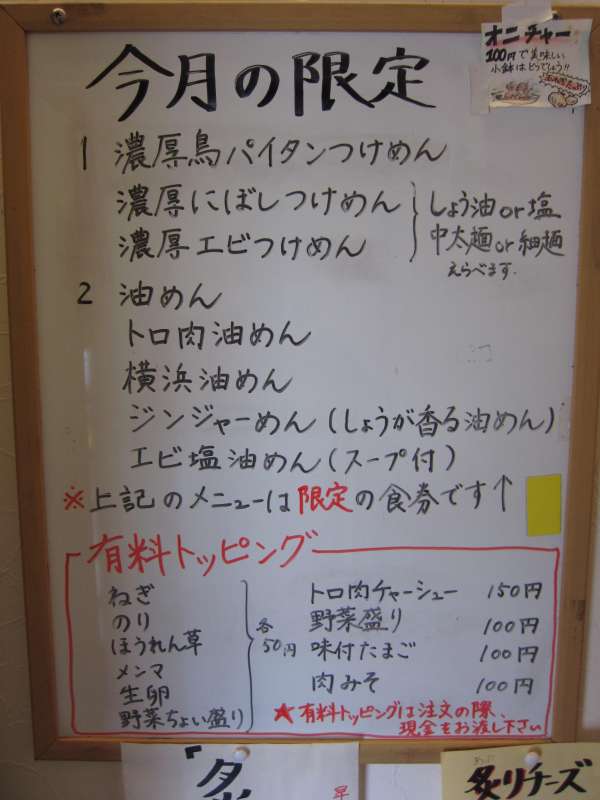 オニチャー
100円で美味しい
小鉢はどうでしょう!!
今月の限定
1 濃厚鳥パイタンつけめん
濃厚にぼしつけめん
濃厚エビつけめん
しょう油or塩
中太麺or細麺
えらべます.
2 油めん
トロ肉油めん
横浜油めん
ジンジャーめん(しょうが香る油めん)
エビ塩油めん(スープ付)
※上記のメニューは限定の食券です↑
有料トッピング
ねぎ
のり
ほうれん草
メンマ
生卵
野菜ちょい盛り
各50円
トロ肉チャーシュー 150円
野菜盛り 100円
味付たまご 100円
肉みそ 100円
★有料トッピングは注文の際、
現金をお渡し下さい
炙りチーズ